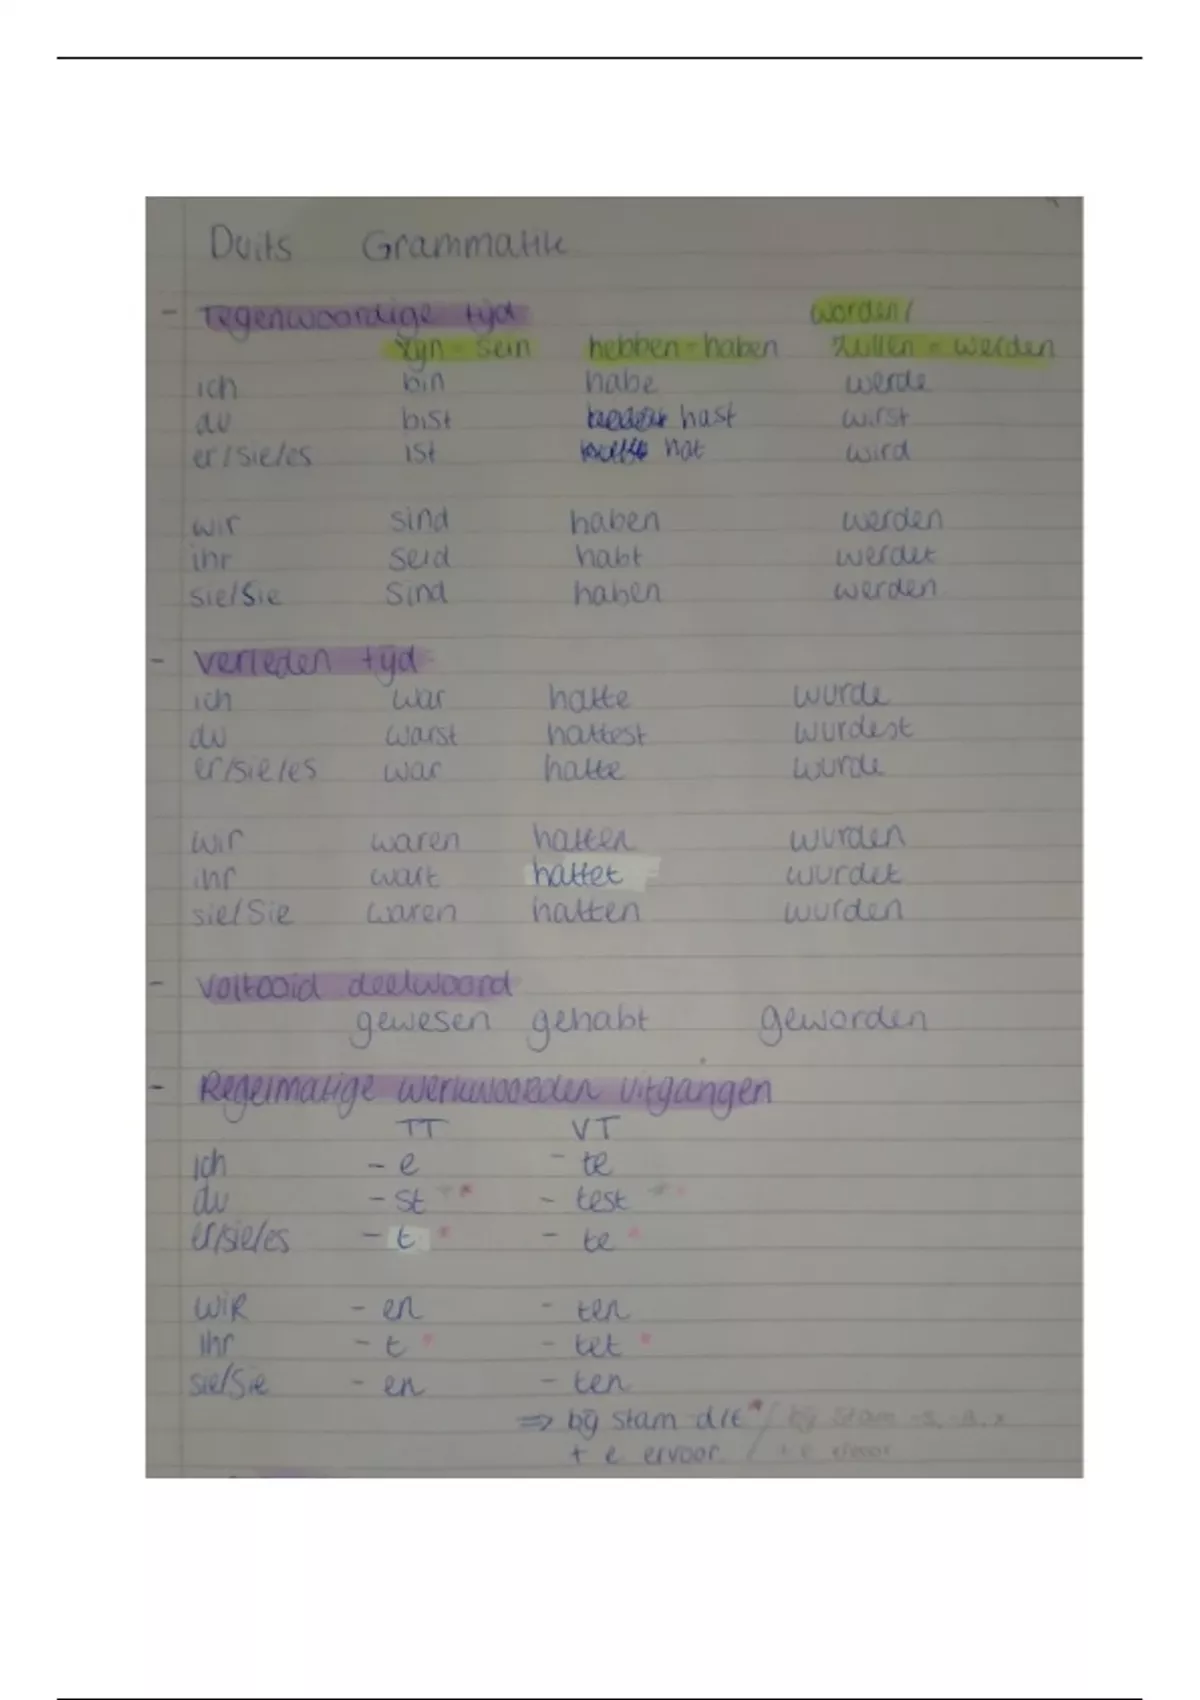 Duits Grammatik
- Tegenwoordige tijd worden/
zijn = sein hebben = haben zullen = werden
ich bin habe werde
du bist hast wirst
er/sie/es ist hat wird
wir sind haben werden
ihr seid habt werdet
sie/Sie sind haben werden
- verleden tijd
ich war hatte wurde
du warst hattest wurdest
er/sie/es war hatte wurde
wir waren hatten wurden
ihr wart hattet wurdet
sie/Sie waren hatten wurden
- voltooid deelwoord
gewesen gehabt geworden
- Regelmatige werkwoorden uitgangen
TT VT
ich - e - te
du - st * - test *
er/sie/es - t * - te *
wir - en - ten
ihr - t * - tet *
sie/Sie - en - ten
⇒ bij stam d/t * / bij stam -s,
+ e ervoor / + e ervoor